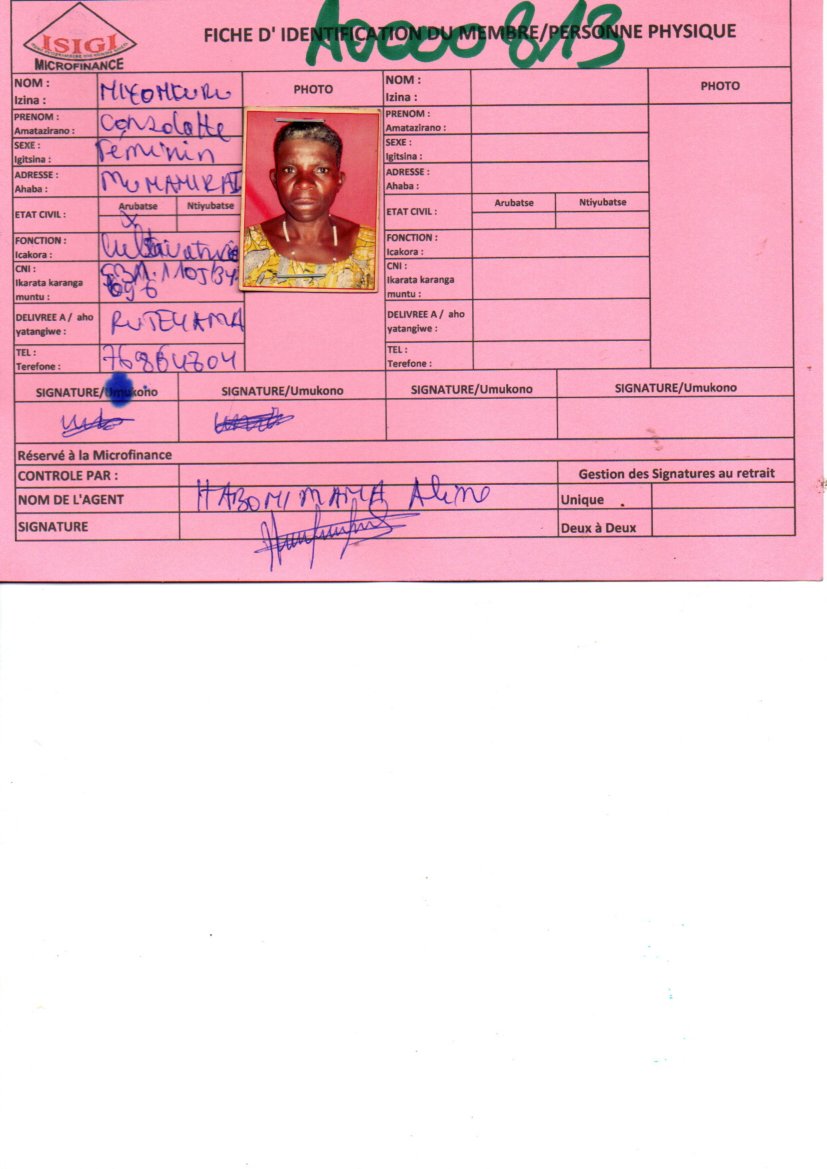 A0000813
FICHE D' IDENTIFICATION DU MEMBRE/PERSONNE PHYSIQUE
ISIGI
MICROFINANCE
NOM :
Izina :
PHOTO
PRENOM : Consolatte
Amatazirano :
SEXE : Féminin
Igitsina :
ADRESSE :
Ahaba :
ETAT CIVIL :
Arubatse Ntiyubatse
X
FONCTION :
Icakora :
CNI :
Ikarata karanga
muntu :
DELIVREE A / aho
yatangiwe :
TEL :
Terefone :
NOM :
Izina :
PHOTO
PRENOM :
Amatazirano :
SEXE :
Igitsina :
ADRESSE :
Ahaba :
ETAT CIVIL :
Arubatse Ntiyubatse
FONCTION :
Icakora :
CNI :
Ikarata karanga
muntu :
DELIVREE A / aho
yatangiwe :
TEL :
Terefone :
SIGNATURE/Umukono SIGNATURE/Umukono SIGNATURE/Umukono SIGNATURE/Umukono
Réservé à la Microfinance
CONTROLE PAR : Gestion des Signatures au retrait
NOM DE L'AGENT Unique
SIGNATURE Deux à Deux